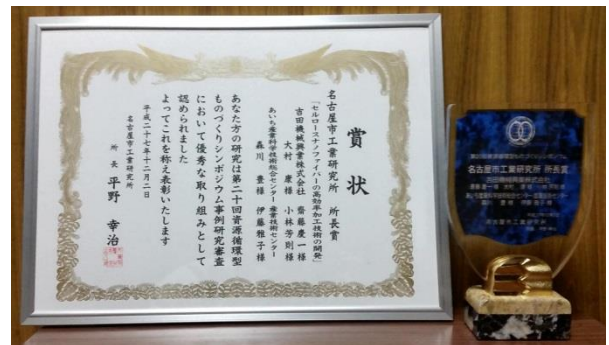 賞状
名古屋市工業研究所 所長賞
「セルロースナノファイバーの高効率加工技術の開発」
吉田機械興業株式会社 齋藤慶一様
大村 康様 小林芳則様
あいち産業科学技術総合センター 産業技術センター
森川 豊様 伊藤雅子様
あなた方の研究は第二十回資源循環型
ものづくりシンポジウム事例研究審査
において優秀な取り組みとして
認められました
よってこれを称え表彰いたします
平成二十七年十二月二日
名古屋市工業研究所
所長 平野 幸治
名古屋市工業研究所 所長賞
吉田機械興業株式会社